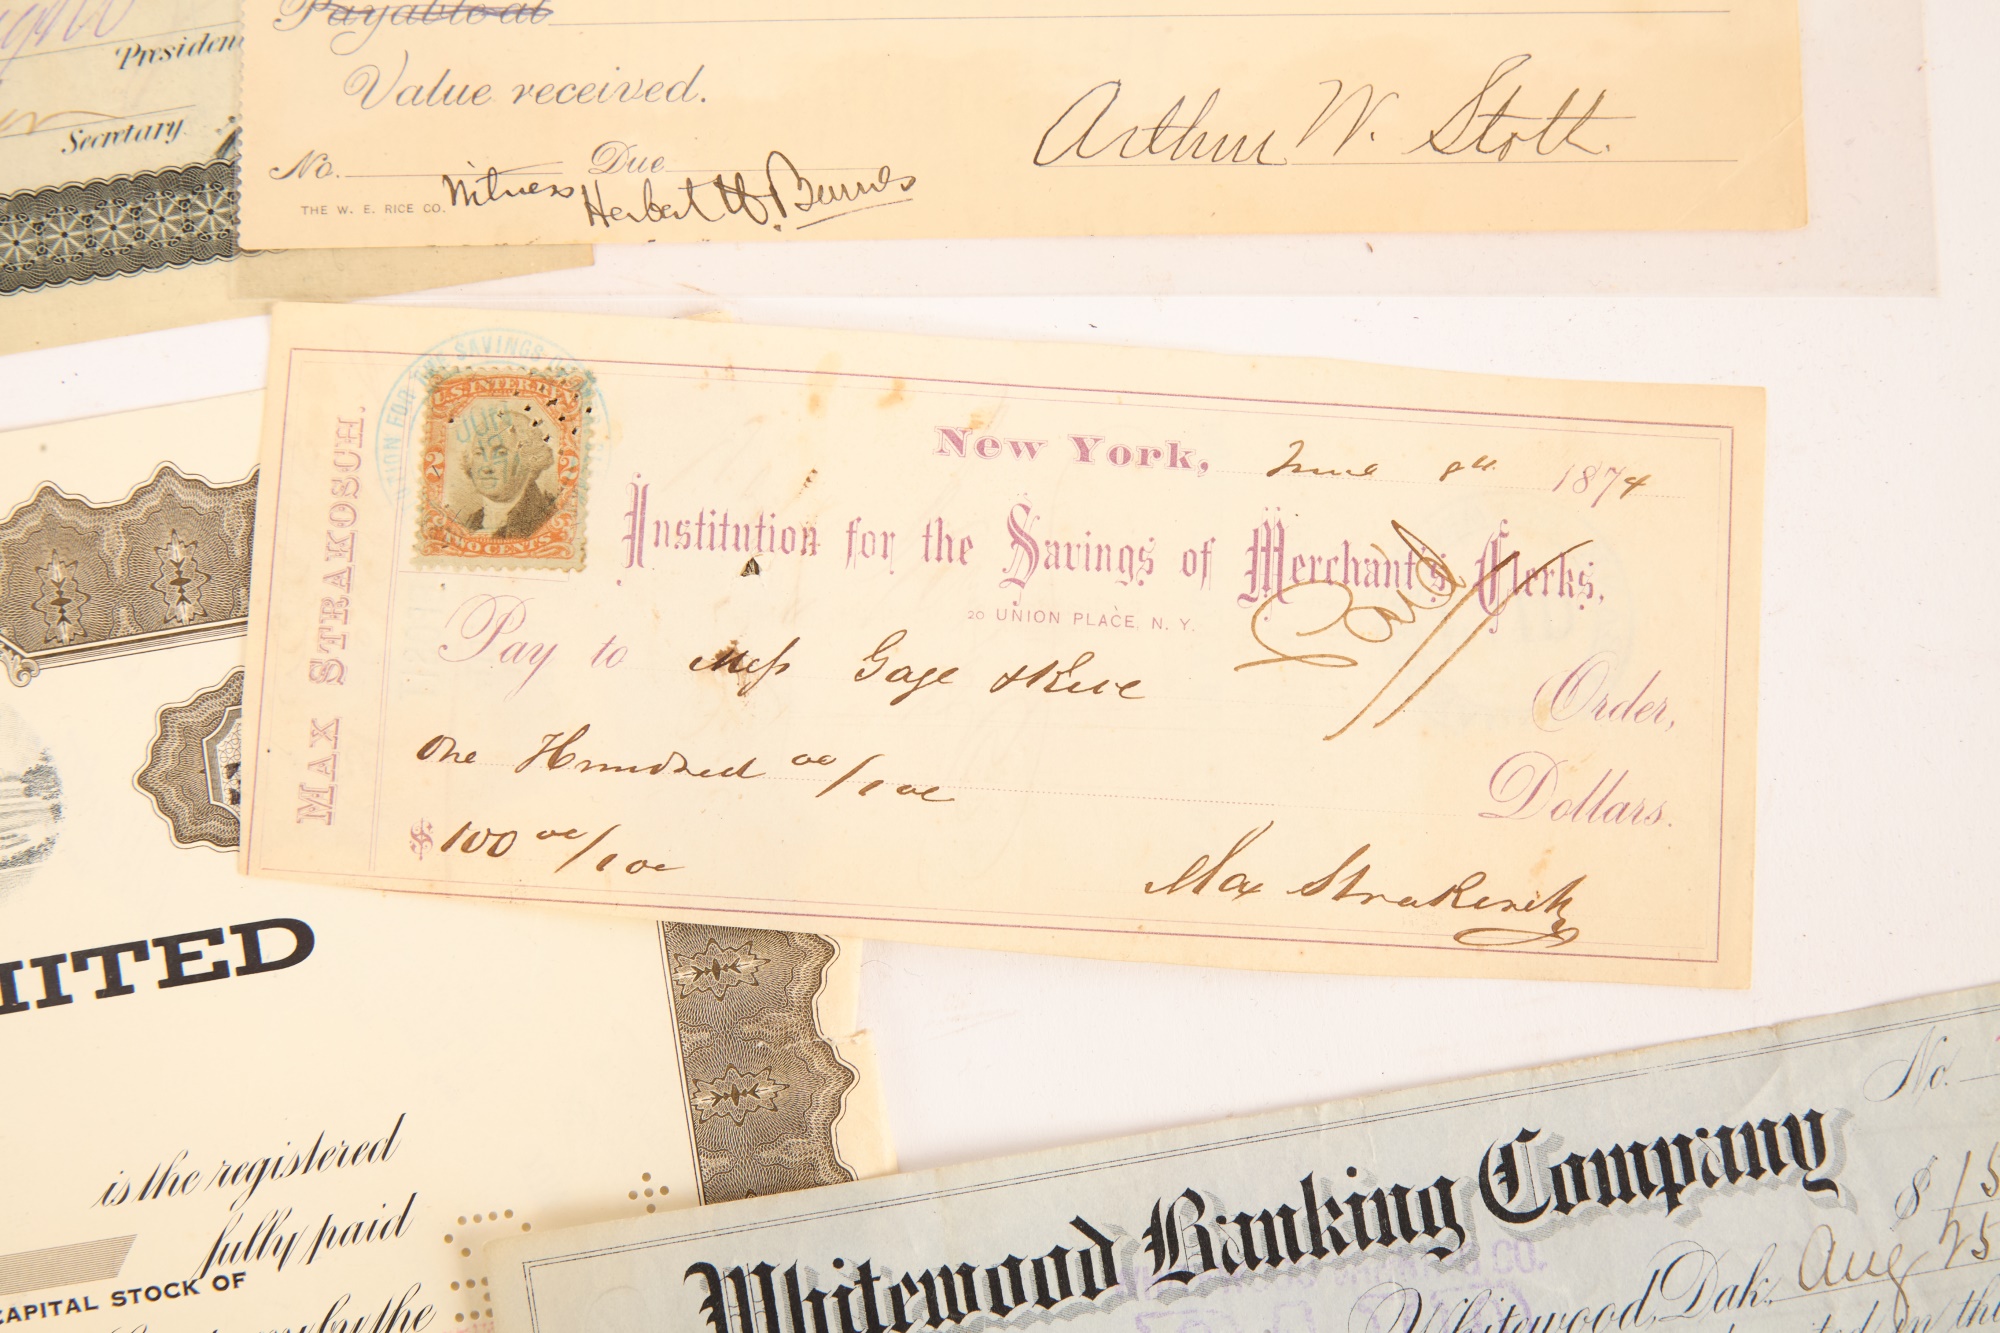 President
Secretary
Payable at
Value received.
No. Due
Witness Herbert W. Burnes
THE W. E. RICE CO.
Arthur W. Stott.
MAX STRAKOSCH.
UNION FOR THE SAVINGS OF
U.S. INTER. REV.
JUN
2 2
TWO CENTS
New York, June 8th 1874
Institution for the Savings of Merchant's Clerks,
20 UNION PLACE, N. Y.
Pay to Mess Gage & Rice
Order,
One Hundred 00/100
Dollars.
$ 100 00/100
Max Strakosch
MITED
is the registered
fully paid
CAPITAL STOCK OF
by the
No.
Whitewood Banking Company
$ 15
Whitewood, Dak. Aug 25
in the